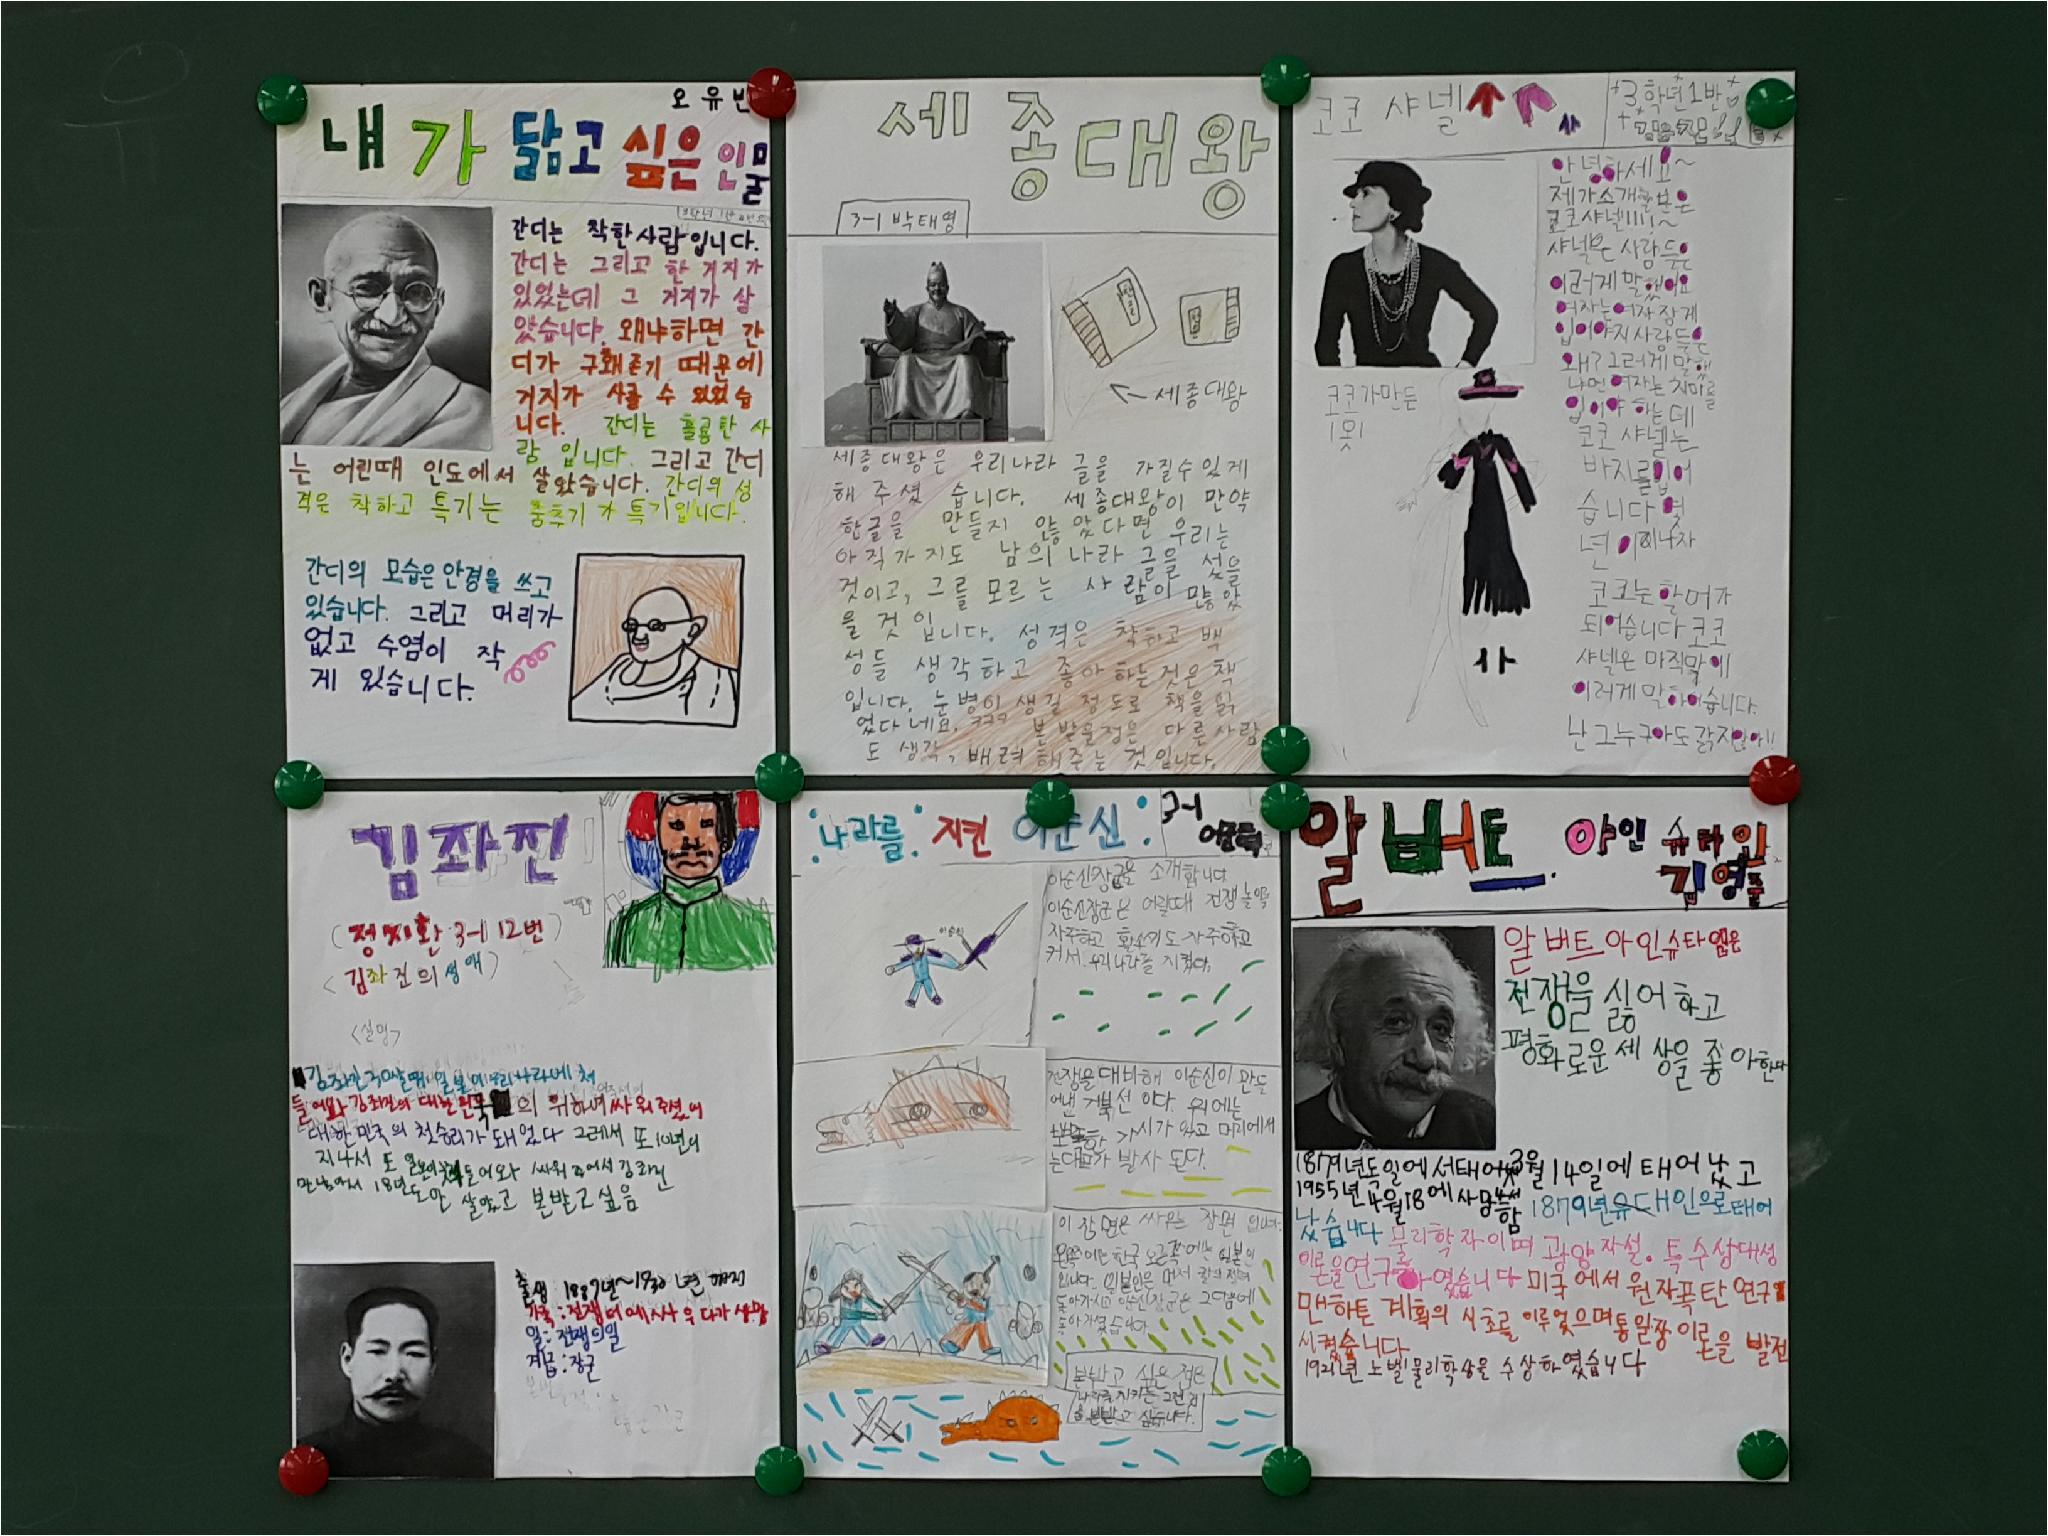 오유빈
내가 닮고 싶은 인물
간디는 착한사람입니다.
간디는 그리고 한 거지가
있었는데 그 거지가 살
았습니다. 왜냐하면 간
디가 구해준기 때문에
거지가 사라 수 있었습
니다. 간디는 훌륭한 사
람 입니다. 그리고 간디
는 어린때 인도에서 살았습니다. 간디의 성
격은 착하고 특기는 춤추기 가 특기입니다.
간디의 모습은 안경을 쓰고
있습니다. 그리고 머리가
없고 수염이 작
게 있습니다.
세종대왕
3-1 박태영
세종대왕
세종대왕은 우리나라 글을 가질수있게
해 주셨 습니다. 세종대왕이 만약
한글을 만들지 않았다면 우리는
아직가지도 남의 나라 글을 썼을
것이고, 그를 모르는 사람이 많았
을 것 입니다. 성격은 착하고 백
성들 생각하고 좋아하는것은 책
입니다. 눈병이 생길 정도로 책을 읽
었다네요. ㅋㅋㅋ 본받을점은 다른사람
도 생각, 배려해주는 것입니다.
코코 샤넬
3학년1반
안녕하세요~
제가소개할분은
코코샤넬!!!!~
샤넬은 사람들은
이러게말했어요
여자는여자잠게
입어야지사람들은
왜? 그러게 말했
냐면 여자는 치마를
입어야 하는데
코코 샤넬는
바지를입어
습니다 몇
년 이 지나자
코코는 할머가
되어습니다 코코
샤넬은 마직막에
이러게말하어습니다.
난 그누구아도 갉지않아!!
코코가만든
옷!
김좌진
(정지환 3-1 12번)
<김좌진의 생애>
<설명>
김좌진 30살때 일본이 우리나라에 쳐
들어와 김좌진의 대한민국의 위하여 싸워주셨어
대한민국의 첫승리가 돼었다 그레서 또 10년이
지나서 또 일본이 쳐들어와 싸워
18년도안 살았고 본받고싶음
출생 1889년~1930년 까지
가족:전쟁터에서싸우다가 사망
일:전쟁의일
계급:장군
나라를 지킨 이순신
3-1
이순신장군을 소개합니다
이순신장군은 어릴때 전쟁놀이를
자주하고 활쏘기도 자주하고
커서 우리나라를 지켰다.
전쟁을 대비해 이순신이 만들
어낸 거북선 이다. 위에는
뽀족한 가시가 있고 머리에서
는대포가 발사 된다.
이 장면은 싸우는 장면 입니다.
왼쪽에는한국 오른쪽에는 일본이
입니다. 일본인은 먼저 칼의 찔려
돌아가시고 이순신장군은 그다음에
돌아가셨습니다
본받고 싶은 점은
나라를 지키는 그런점
을 본받고 싶습니다.
알버트 아인슈타인
김영준
알버트아인슈타인은
전쟁을 싫어하고
평화로운 세상을 좋아한다
1879년독일에서태어 3월 14일에 태어났고
1955년4월18에사망 함 1879년유대인으로태어
났습니다 물리학자이며 광양자설. 특수상대성
이론을연구하였습니다 미국에서 원자폭탄 연구
맨하튼 계획의 시초를 이루었으며통일장 이론을 발전
시켰습니다
1921년 노벨물리학상을 수상하였습니다